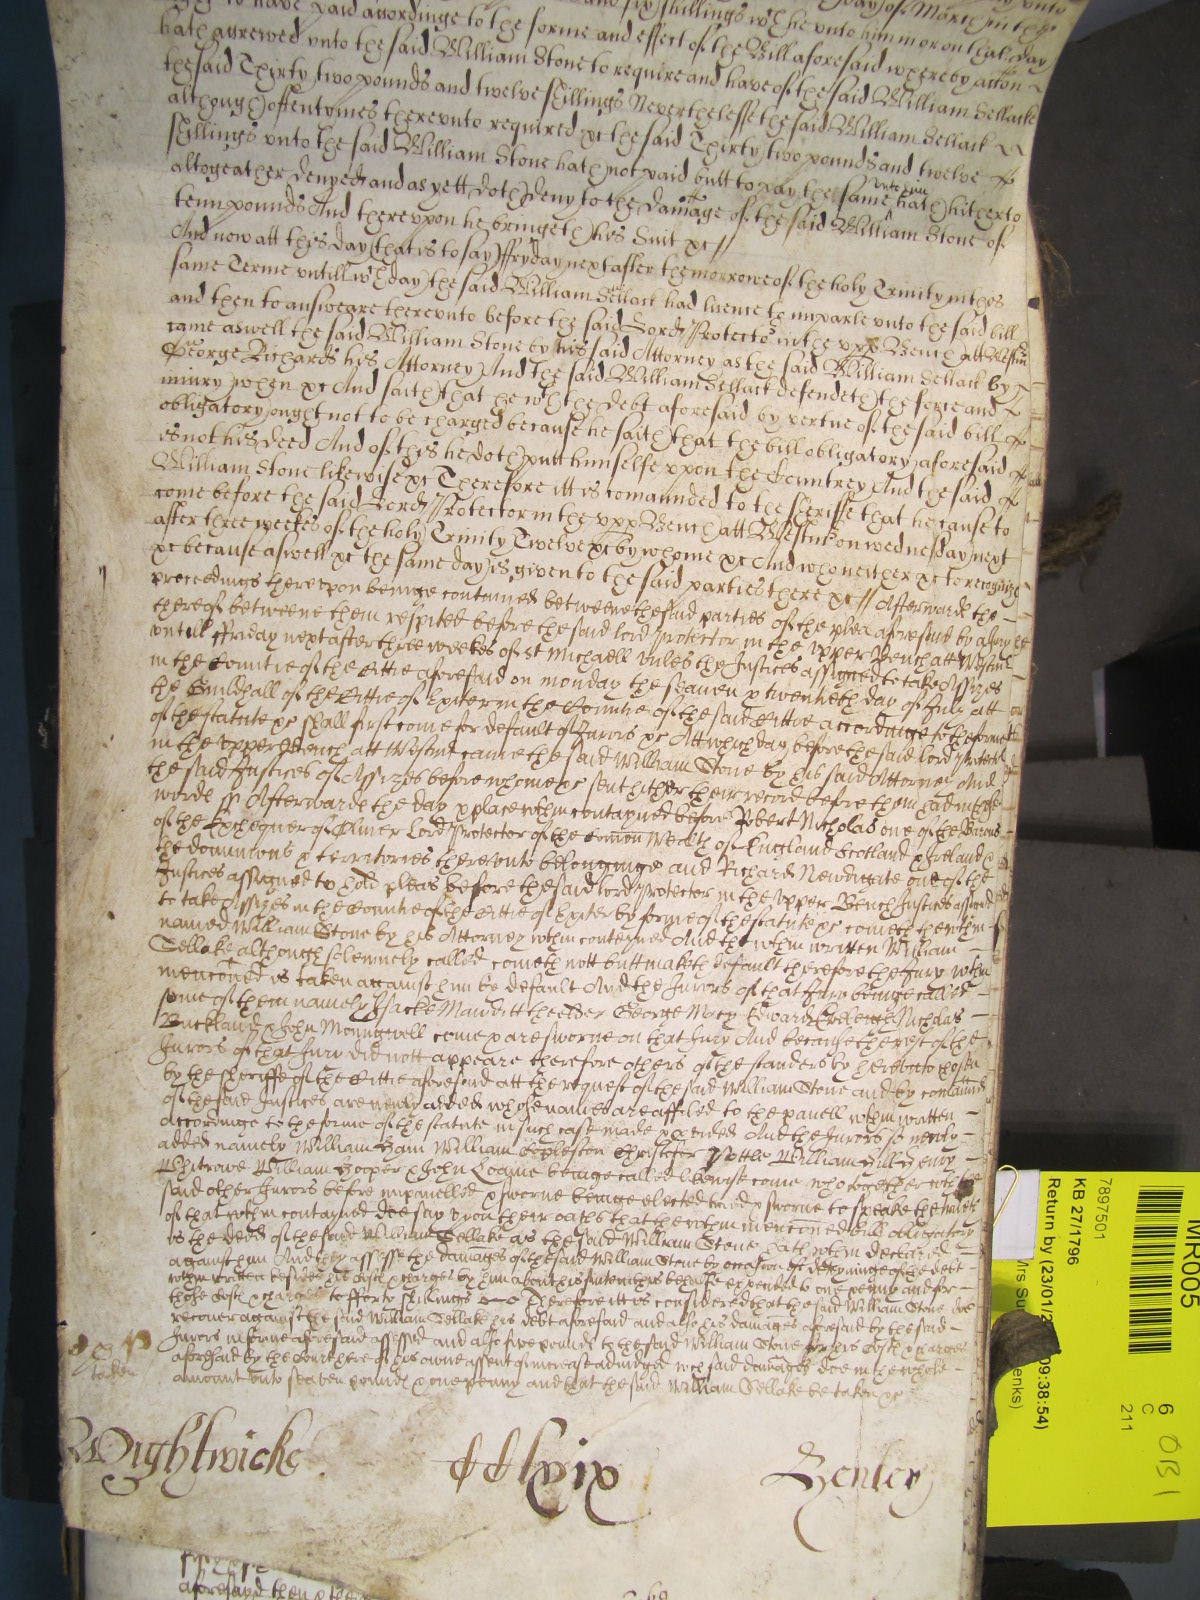 to have paid accordinge to the forme and effect of the Bill aforesaid whereby accon
hath accrewed unto the said William Stone to require and have of the said William Sellack
the said Thirty two pounds and twelve shillings Neverthelesse the said William Sellack
although oftentymes thereunto required &c the said Thirty two pounds and twelve
shillings unto the said William Stone hath not paid butt to pay the same unto him hath hitherto
altogeather denyed and as yett doth deny to the damage of the said William Stone of
tenn pounds And thereupon he bringeth his Suit &c //
And now att this day (that is to say) ffryday next after the morrowe of the holy Trinity in this
same Terme untill wch day the said William Sellack had licence to imparle unto the said bill
and then to answeare thereunto before the said Lord Protector in the upp Bench att Westm
came aswell the said William Stone by his said Attorney as the said William Sellack by
George Richards his Attorney And the said William Sellack defendeth the force and
iniury when &c And saith that he wth the debt aforesaid by vertue of the said bill
obligatory ought not to be charged because he saith that the bill obligatory aforesaid
is not his deed And of this he doth putt himselfe uppon the Countrey And the said
William Stone likewise &c Therefore itt is comaunded to the Sheriffe that he cause to
come before the said Lord Protector in the upp Bench att Westm on wednesday next
after three weekes of the holy Trinity Twelve &c by whome &c And who neither &c to recognize
&c because aswell &c the same day is given to the said parties there &c // Afterwards the
proceedings thereupon beinge contained betweene the said parties of the plea aforesaid by a Jury
thereof betweene them respited before the said lord Protector in the Upper Bench att Westm
untill ffriday next after three weekes of St Michaell unles the Justices assigned to take Assizes
in the Countie of the Cittie aforesaid on monday the seaven & twentieth day of July att
the Guildhall of the Cittie of Exiter in the Countie of the said Cittie accordinge to the forme
of the statute &c shall first come for default of Jurors &c Att which day before the said lord Protector
in the upper Bench att Westm came the said William Stone by his said Attorney And
the said Justices of Assizes before whome &c sent hither their record before them had in these
words ss Afterwards the day & place wthin contayned before Robert Nicholas one of the Barons
of the Exchequer of Oliver Lord Protector of the Comon Wealth of England Scotland & Ireland &
the dominions & territories thereunto belonginge and Richard Newdigate one of the
Justices assigned to hold pleas before the said lord Protector in the Upper Bench Justices assigned
to take Assizes in the Countie of the Cittie of Exiter by forme of the statute &c cometh the wthin
named William Stone by his Attorney wthin conteyned And the wthin written William
Sellake although solemnely called cometh nott butt maketh default therefore the Jury wthin
menconed is taken against him by default And the Jurors of that Jury beinge called
some of them namely Isacke Mawditt the elder George Macy Edward Nicholas
Buckland & John Monngwell come & are sworne on that Jury And because the rest of the
Jurors of that Jury did nott appeare therefore others of the standers by hereto chosen
by the sheriffe of the Cittie aforesaid att the request of the said William Stone and by comaund
of the said Justices are newly added whose names are affiled to the panell wthin written
accordinge to the forme of the statute in such case made & provided And the Jurors so newly
added namely William Ham William Ecpleston Christofer Pottle William Hill Henry
Whitrowe William Hooper & John Loame beinge called likewise come who together with the
said other Jurors before impanelled & sworne beinge elected tried & sworne to speake the truth
of that wthin contayned doe say upon their oaths that the wthin menconed bill obligatory
is the deed of the said William Sellake as the said William Stone hath wthin declared
against him And they assesse the damages of the said William Stone by occasion of the deteyninge of the debt
wthin written besides his costs & charges by him about his suite in this behalfe expended to one penny and for
those costs & charges to fforty shillings Therefore itt is considered that the said William Stone doe
recover against the said William Sellake his debt aforesaid and also his damages aforesaid by the said
Jurors in forme aforesaid assessed and also five pounds to the said William Stone for his costs & charges
aforesaid by the Court here of his owne assent of increase adiudged wch said damages doe in the whole
amount unto seaven pounds & one penny and that the said William Sellake be taken &c
taken
Wightwicke
Henley
aforesayd then & there
MR005
7897501
KB 27/1796
Return by (23/01/2
09:38:54)
Mrs Su
enks)
6
C
211